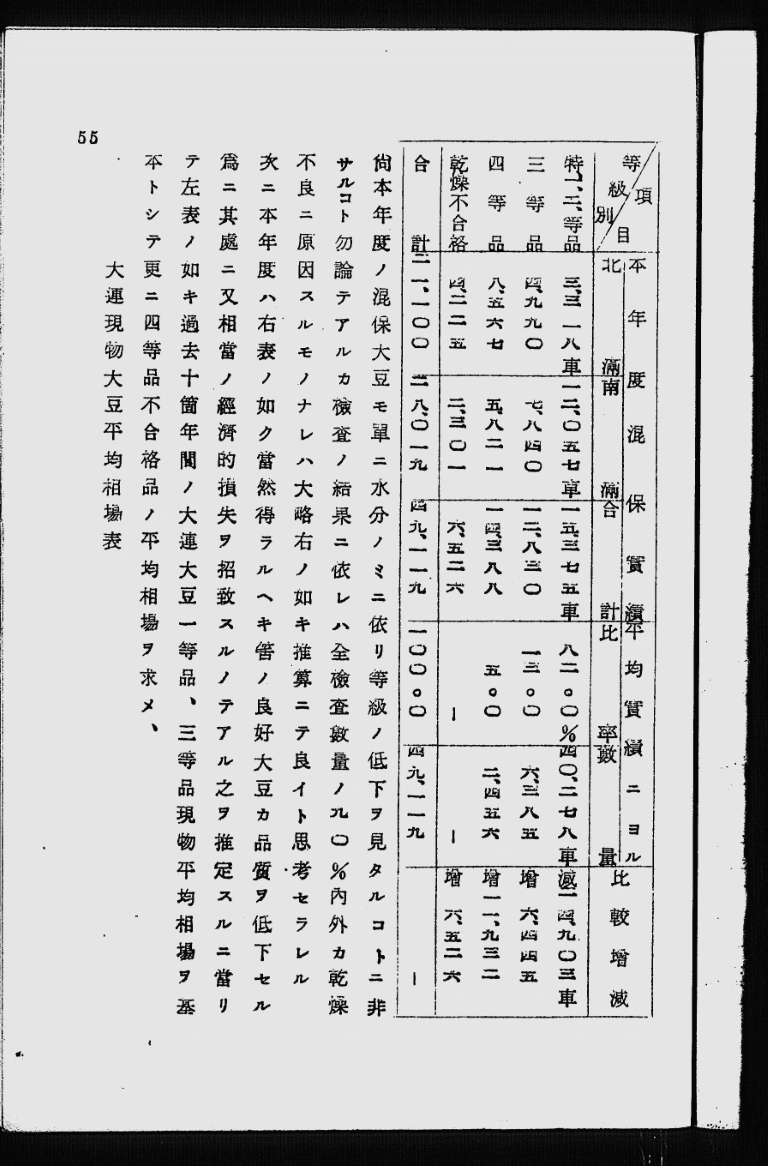 項目 等級別
本年度混保實績 平均實績ニヨル 比較增減
北滿 南滿 合計 比率 數量
特、一、二、等品 三、三一八車 一二、〇五七車 一五、三七五車 八二。〇〇% 四〇、二七八車 減二四、九〇三車
三等品 四、九九〇 七、八四〇 一二、八三〇 一三。〇〇 六、三八五 增 六、四四五
四等品 八、五六七 五、八二一 一四、三八八 五。〇〇 二、四五六 增一一、九三二
乾燥不合格 四、二二五 二、三〇一 六、五二六 ー ー 增 六、五二六
合計 二一、一〇〇 二八、〇一九 四九、一一九 一〇〇。〇〇 四九、一一九 ー
尙本年度ノ混保大豆モ單ニ水分ノミニ依リ等級ノ低下ヲ見タルコトニ非
サルコト勿論テアルカ檢査ノ結果ニ依レハ全檢査數量ノ九〇%內外カ乾燥
不良ニ原因スルモノナレハ大略右ノ如キ推算ニテ良イト思考セラレル
次ニ本年度ハ右表ノ如ク當然得ラルヘキ筈ノ良好大豆カ品質ヲ低下セル
爲ニ其處ニ又相當ノ經濟的損失ヲ招致スルノテアル之ヲ推定スルニ當リ
テ左表ノ如キ過去十箇年間ノ大連大豆一等品、三等品現物平均相場ヲ基
本トシテ更ニ四等品不合格品ノ平均相場ヲ求メ、
大連現物大豆平均相場表
55